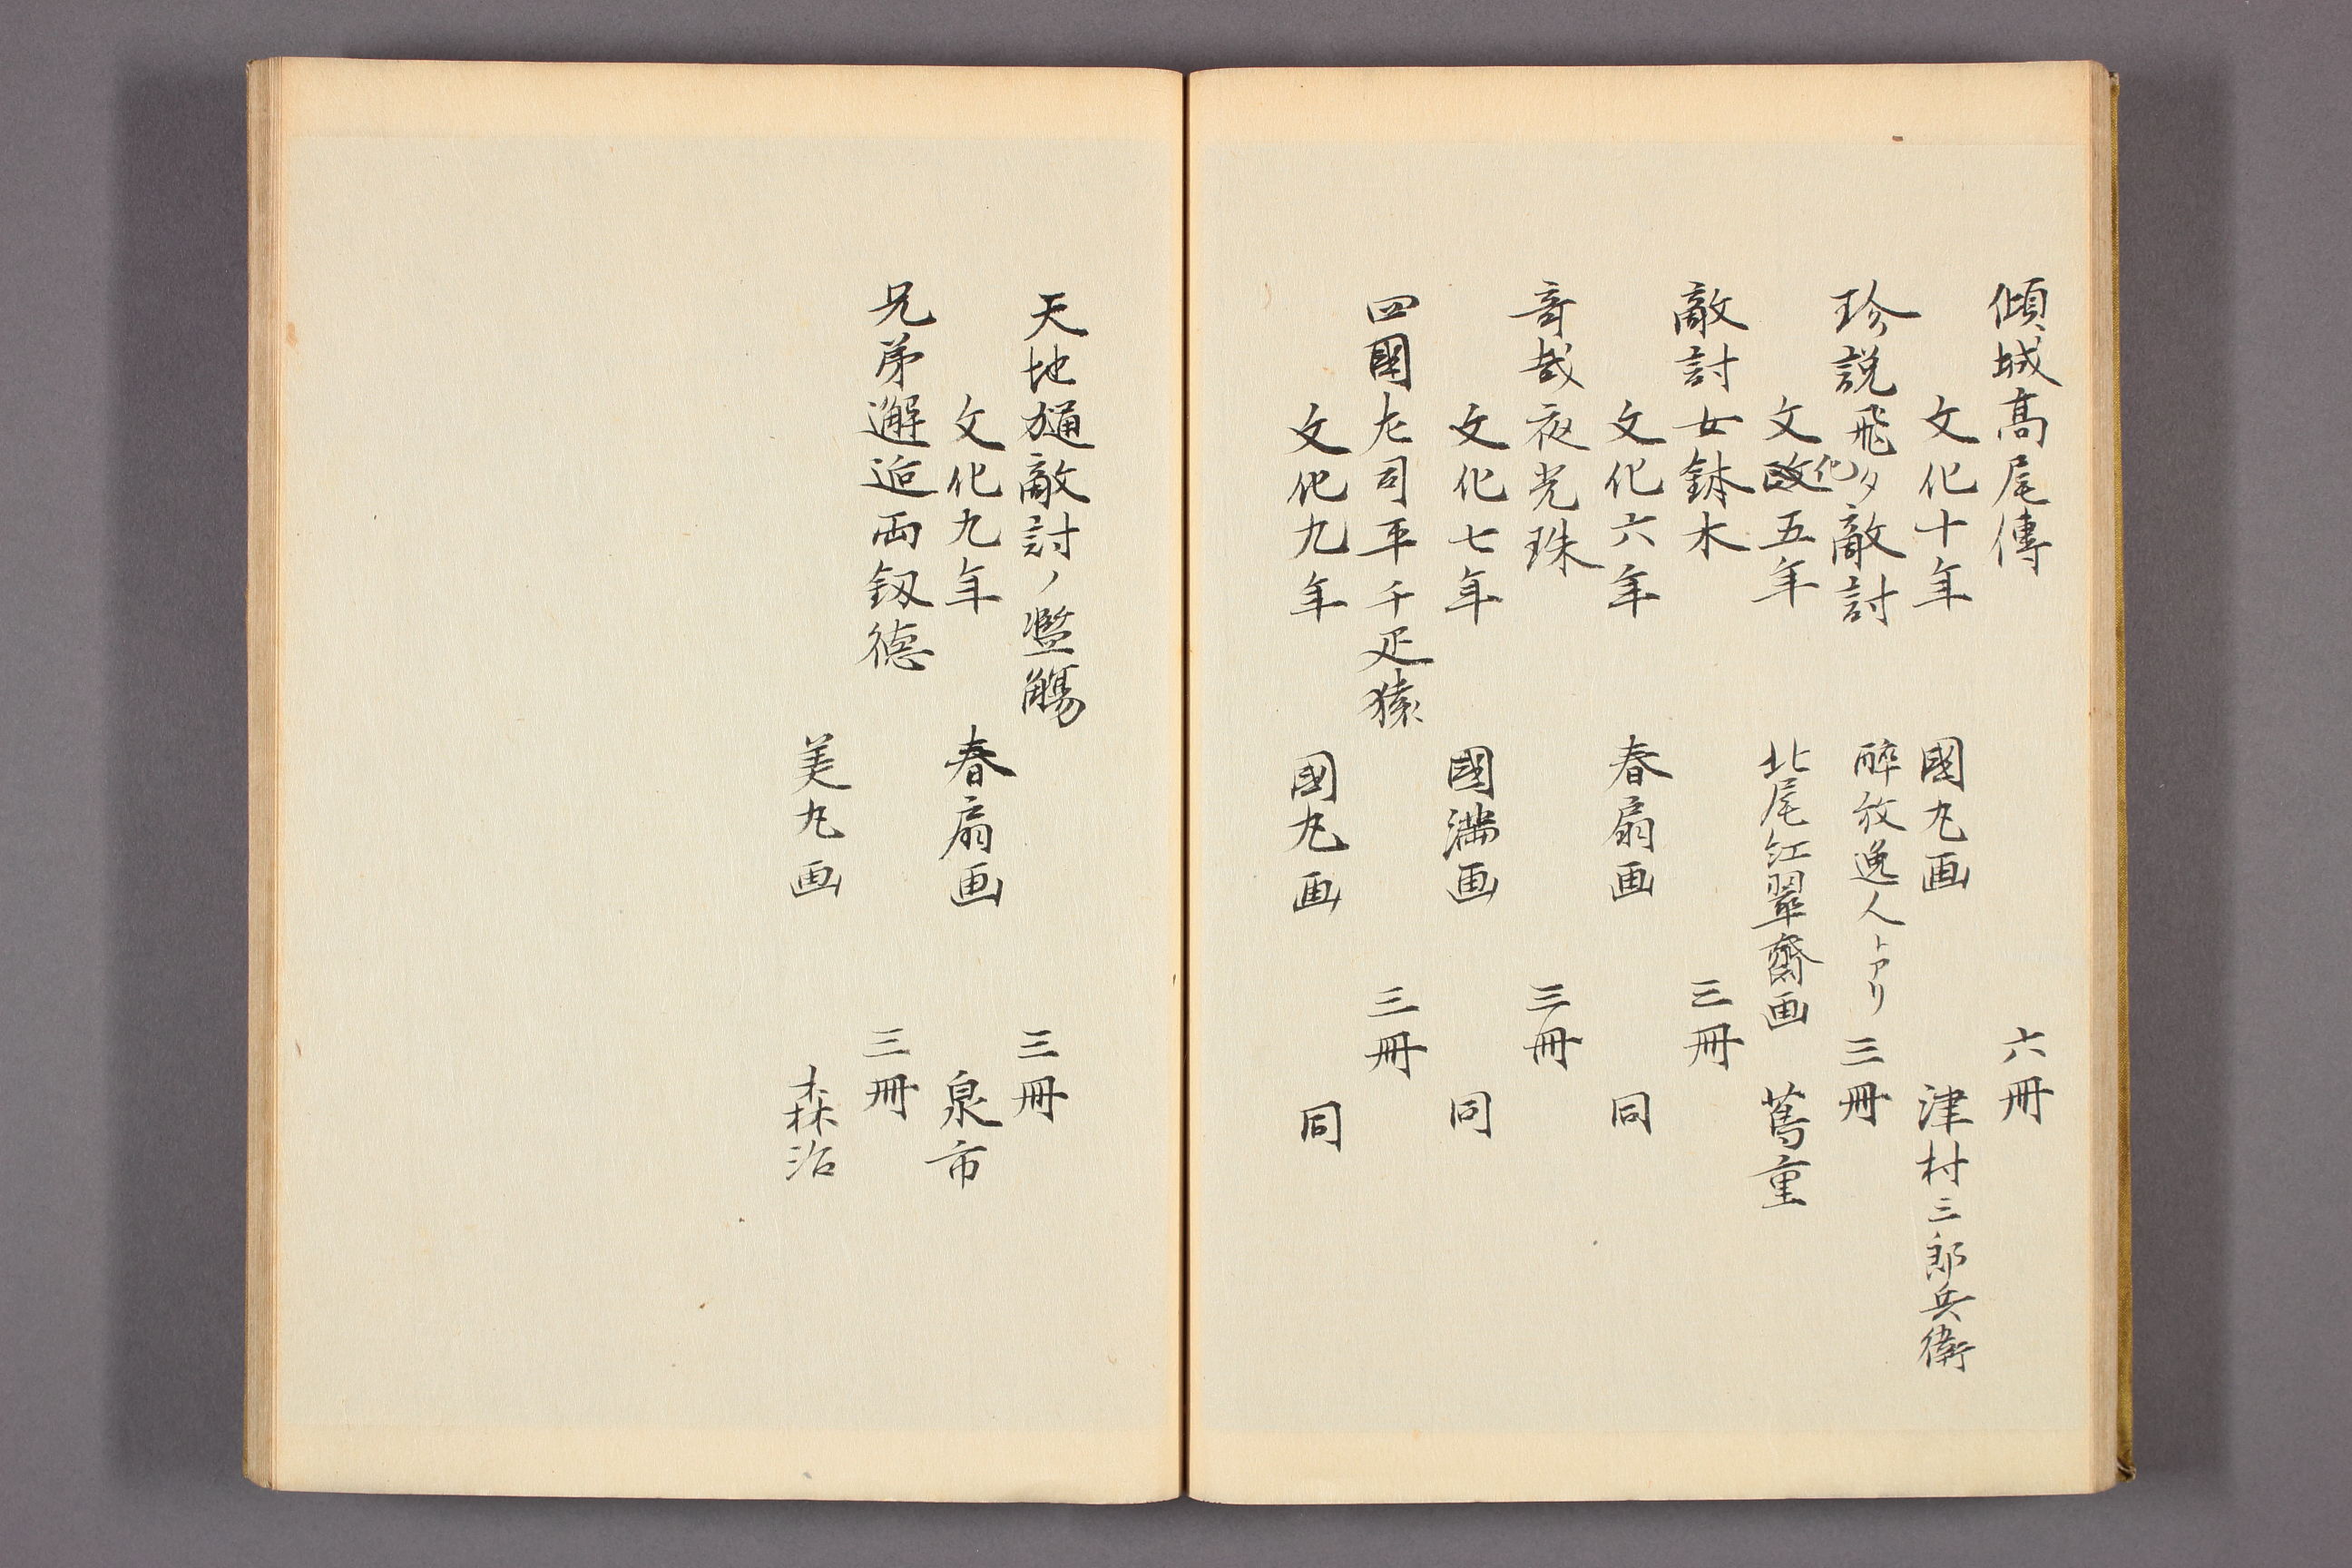 傾城高尾傳　六冊
文化十年　國丸画　津村三郎兵衛
珍説飛タ敵討　酔放逸人トアリ　三冊
文化五年　北尾紅翠齋画　蔦重
敵討女鉢木　三冊
文化六年　春扇画　同
奇哉夜光珠　三冊
文化七年　國満画　同
四國左司平千疋猿　三冊
文化九年　國丸画　同
天地樋敵討ノ濫觴　三冊
文化九年　春扇画　泉市
兄弟邂逅両釼德　三冊
美丸画　森治